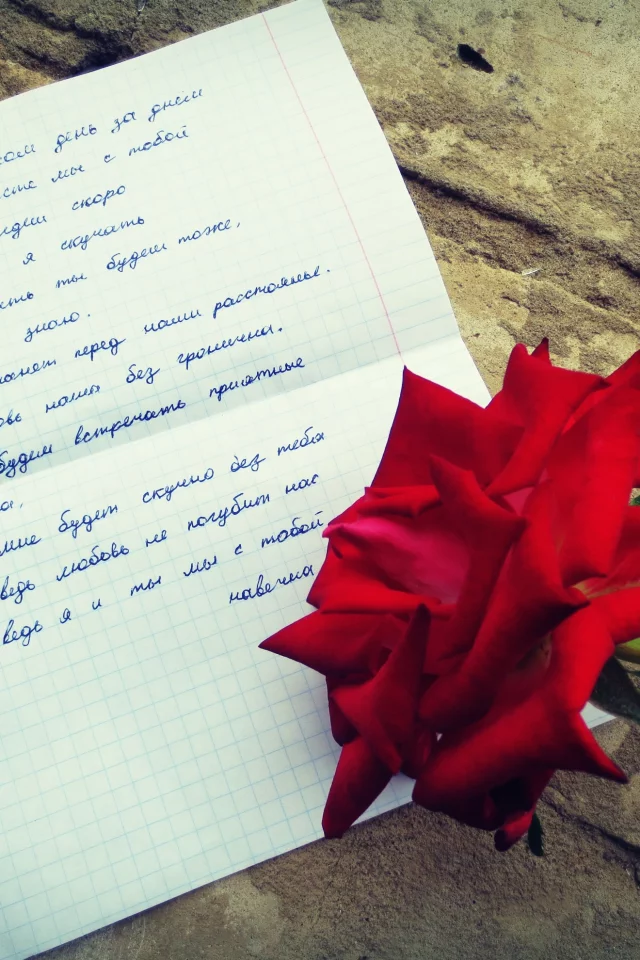 день за днём
мы с тобой
скоро
я скучать
ты будеш тоже,
знаю.
перед нами расстоянье.
нашы без гронични.
будем встречать приятные
а,
мне будет скучно без тебя
ведь любовь не погубит нас
ведь я и ты мы с тобой
навечна